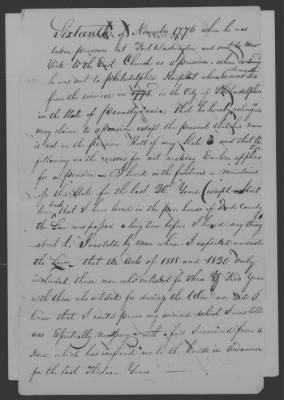 Sixteenth of November 1776 when he was
taken prisoner at Fort Washington and sent to New
York to the Church as a prison when exchanged
he was sent to Philadelphia Hospital where he was
from the service in 1778. in the City of Philadelphia
in the State of Pennsylvania. That he hereby relinquishes
every claim to a pension except the present that his name
is not on the Pension Roll of any State & and that the
following are the reasons for not making Earlier applica
for a pension — I lived in the fastness or mountains
of this State for the last 30 Years except
that I have lived in the poor house of said County
the Law was passed a long time before I heard any thing
about it. I was told by men whom I expected understood
the Law — that the Acts of 1818 and 1820 only
included those men who enlisted for Three & Five Years
with those who enlisted for during the War and did I
know that I could prove my services which I was told
was Essentially necessary — with a fall I received from a
Horse which has confined me to the House in a manner
for the last Thirteen Years